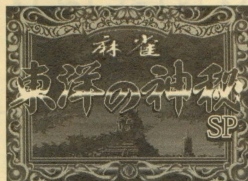 麻雀
東洋の神秘
SP